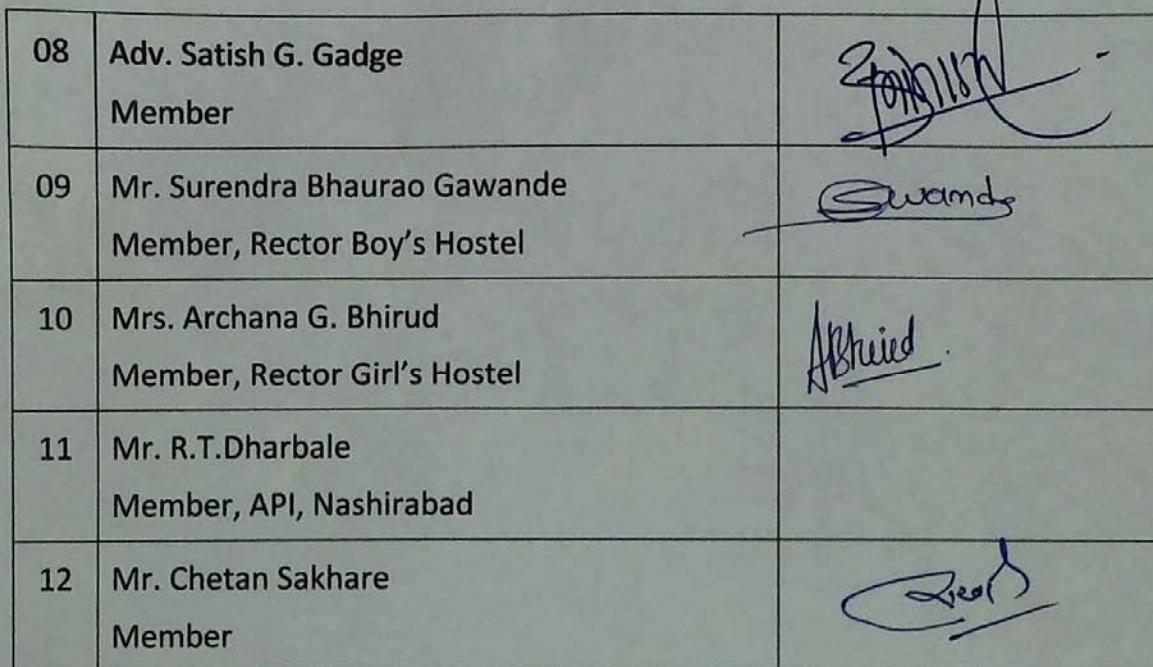 08 Adv. Satish G. Gadge
Member
09 Mr. Surendra Bhaurao Gawande
Member, Rector Boy's Hostel
10 Mrs. Archana G. Bhirud
Member, Rector Girl's Hostel
11 Mr. R.T.Dharbale
Member, API, Nashirabad
12 Mr. Chetan Sakhare
Member